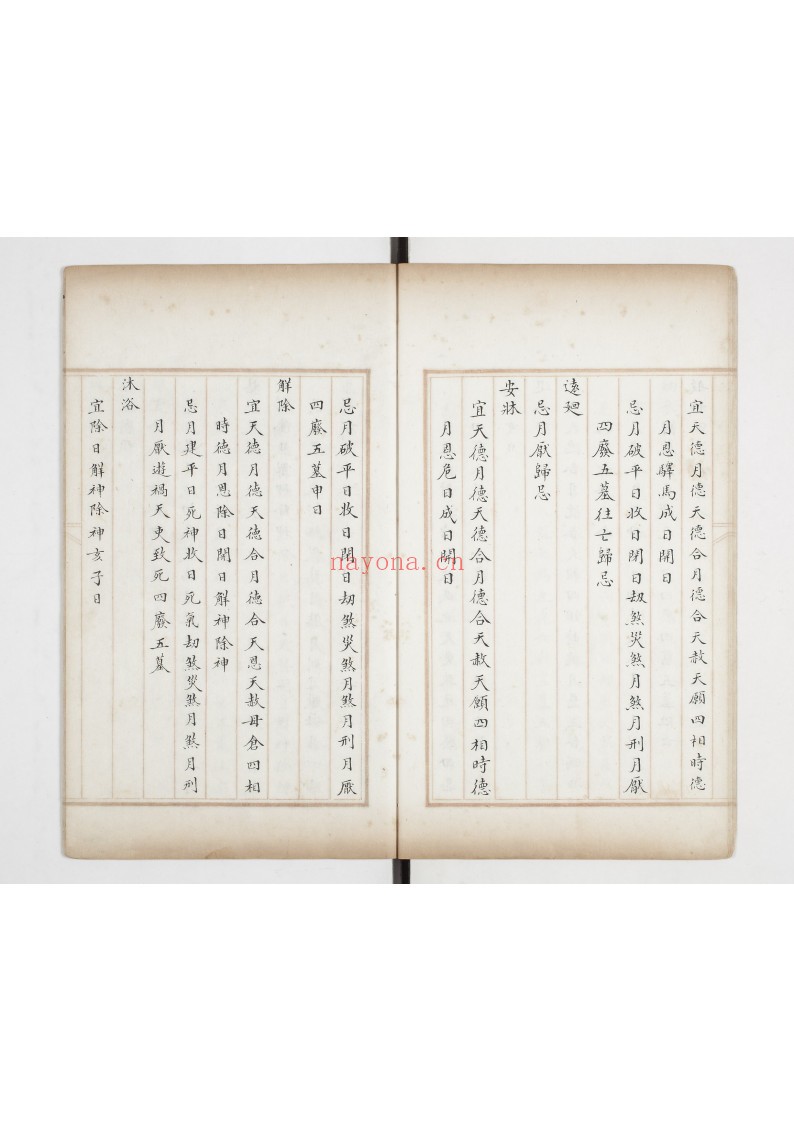 宜天德月德天德合月德合天赦天願四相時德
月恩驛馬成日開日
忌月破平日收日閉日劫煞災煞月煞月刑月厭
四廢五墓往亡歸忌
遠廻
忌月厭歸忌
安牀
宜天德月德天德合月德合天赦天願四相時德
月恩危日成日開日
忌月破平日收日閉日劫煞災煞月煞月刑月厭
四廢五墓申日
解除
宜天德月德天德合月德合天恩天赦母倉四相
時德月恩除日開日解神除神
忌月建平日死神收日死氣劫煞災煞月煞月刑
月厭遊禍天吏致死四廢五墓
沐浴
宜除日解神除神亥子日
nayona.cn